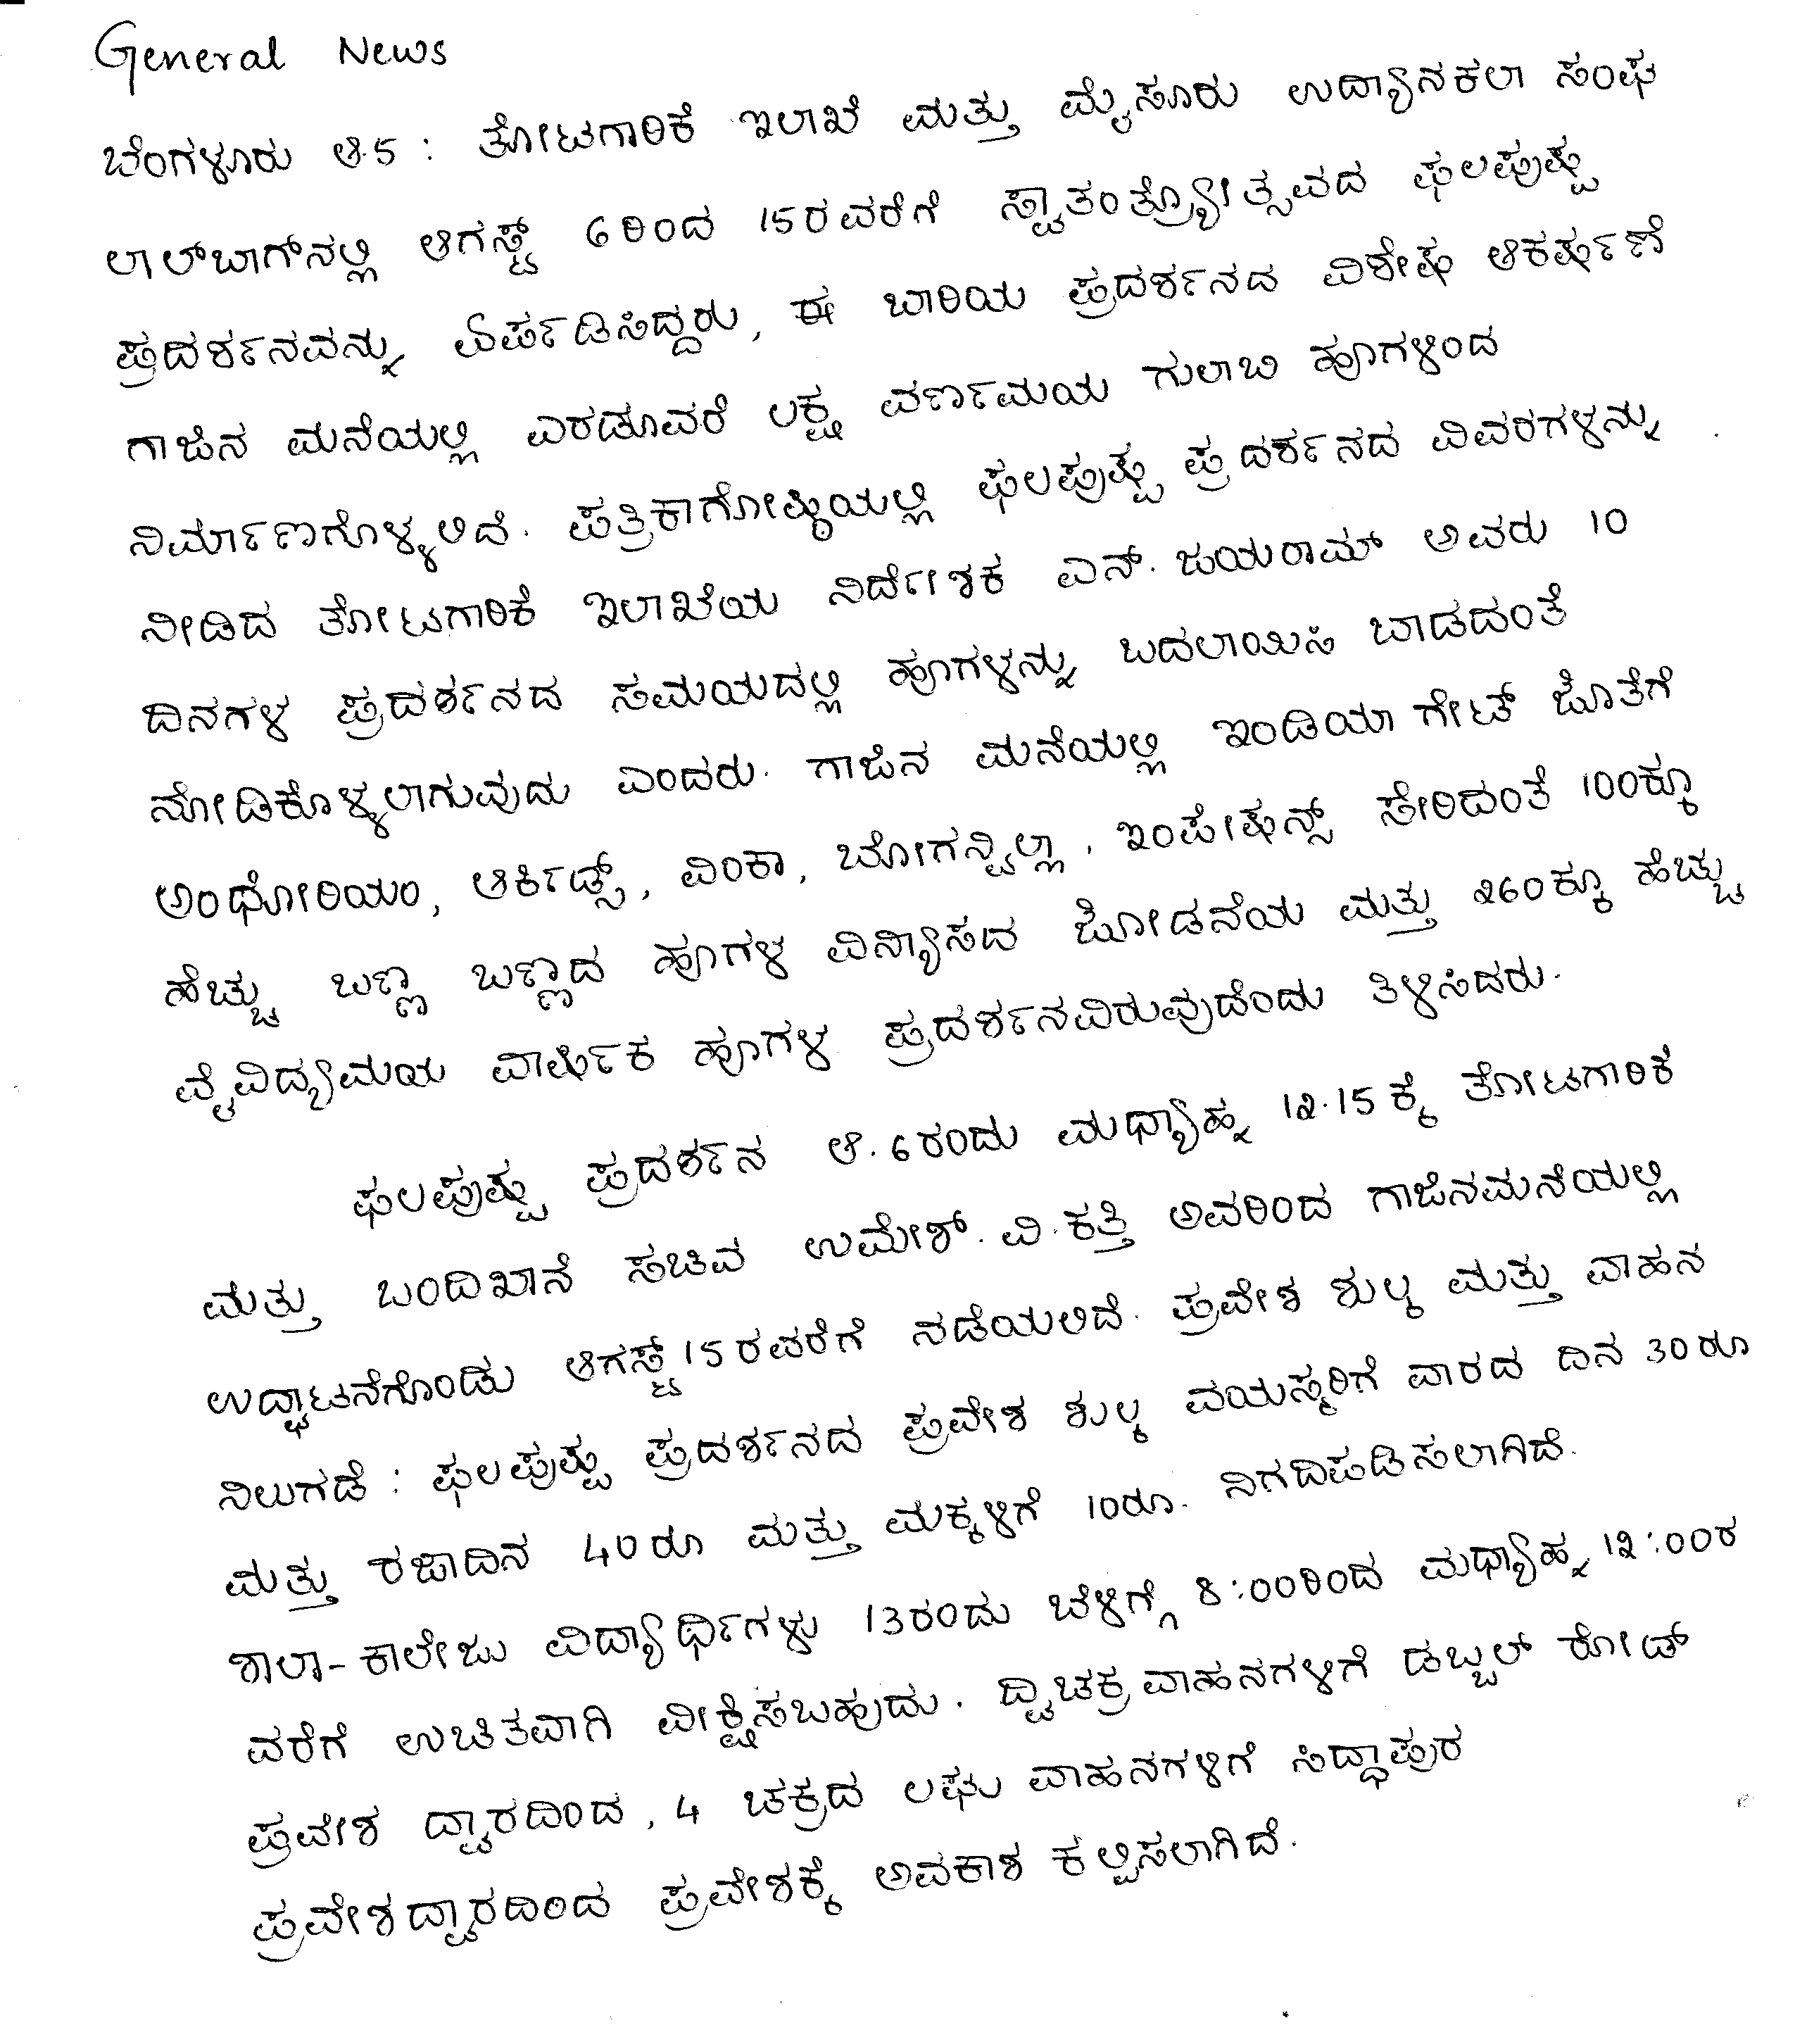 General News
ಬೆಂಗಳೂರು ಆ.5 : ತೋಟಗಾರಿಕೆ ಇಲಾಖೆ ಮತ್ತು ಮೈಸೂರು ಉದ್ಯಾನಕಲಾ ಸಂಘ
ಲಾಲ್‌ಬಾಗ್‌ನಲ್ಲಿ ಆಗಸ್ಟ್ 6ರಿಂದ 15ರವರೆಗೆ ಸ್ವಾತಂತ್ರ್ಯೋತ್ಸವದ ಫಲಪುಷ್ಪ
ಪ್ರದರ್ಶನವನ್ನು ಏರ್ಪಡಿಸಿದ್ದರು, ಈ ಬಾರಿಯ ಪ್ರದರ್ಶನದ ವಿಶೇಷ ಆಕರ್ಷಣೆ
ಗಾಜಿನ ಮನೆಯಲ್ಲಿ ಎರಡೂವರೆ ಲಕ್ಷ ವರ್ಣಮಯ ಗುಲಾಬಿ ಹೂಗಳಿಂದ
ನಿರ್ಮಾಣಗೊಳ್ಳಲಿದೆ. ಪತ್ರಿಕಾಗೋಷ್ಠಿಯಲ್ಲಿ ಫಲಪುಷ್ಪ ಪ್ರದರ್ಶನದ ವಿವರಗಳನ್ನು
ನೀಡಿದ ತೋಟಗಾರಿಕೆ ಇಲಾಖೆಯ ನಿರ್ದೇಶಕ ಎನ್. ಜಯರಾಮ್ ಅವರು 10
ದಿನಗಳ ಪ್ರದರ್ಶನದ ಸಮಯದಲ್ಲಿ ಹೂಗಳನ್ನು ಬದಲಾಯಿಸಿ ಬಾಡದಂತೆ
ನೋಡಿಕೊಳ್ಳಲಾಗುವುದು ಎಂದರು. ಗಾಜಿನ ಮನೆಯಲ್ಲಿ ಇಂಡಿಯಾ ಗೇಟ್ ಜೊತೆಗೆ
ಅಂಥೋರಿಯಂ, ಆರ್ಕಿಡ್ಸ್, ವಿಂಕಾ, ಬೋಗನ್ವಿಲ್ಲಾ, ಇಂಪೇಷನ್ಸ್ ಸೇರಿದಂತೆ 100ಕ್ಕೂ
ಹೆಚ್ಚು ಬಣ್ಣ ಬಣ್ಣದ ಹೂಗಳ ವಿನ್ಯಾಸದ ಜೋಡನೆಯ ಮತ್ತು 260ಕ್ಕೂ ಹೆಚ್ಚು
ವೈವಿದ್ಯಮಯ ವಾರ್ಷಿಕ ಹೂಗಳ ಪ್ರದರ್ಶನವಿರುವುದೆಂದು ತಿಳಿಸಿದರು.
ಫಲಪುಷ್ಪ ಪ್ರದರ್ಶನ ಆ. 6ರಂದು ಮಧ್ಯಾಹ್ನ 12.15ಕ್ಕೆ ತೋಟಗಾರಿಕೆ
ಮತ್ತು ಬಂದಿಖಾನೆ ಸಚಿವ ಉಮೇಶ್. ವಿ. ಕತ್ತಿ ಅವರಿಂದ ಗಾಜಿನಮನೆಯಲ್ಲಿ
ಉದ್ಘಾಟನೆಗೊಂಡು ಆಗಸ್ಟ್ 15ರವರೆಗೆ ನಡೆಯಲಿದೆ. ಪ್ರವೇಶ ಶುಲ್ಕ ಮತ್ತು ವಾಹನ
ನಿಲುಗಡೆ : ಫಲಪುಷ್ಪ ಪ್ರದರ್ಶನದ ಪ್ರವೇಶ ಶುಲ್ಕ ವಯಸ್ಕರಿಗೆ ವಾರದ ದಿನ 30ರೂ
ಮತ್ತು ರಜಾದಿನ 40ರೂ ಮತ್ತು ಮಕ್ಕಳಿಗೆ 10ರೂ. ನಿಗದಿಪಡಿಸಲಾಗಿದೆ.
ಶಾಲಾ-ಕಾಲೇಜು ವಿದ್ಯಾರ್ಥಿಗಳು 13ರಂದು ಬೆಳಿಗ್ಗೆ 8:00ರಿಂದ ಮಧ್ಯಾಹ್ನ 12:00ರ
ವರೆಗೆ ಉಚಿತವಾಗಿ ವೀಕ್ಷಿಸಬಹುದು. ದ್ವಿಚಕ್ರ ವಾಹನಗಳಿಗೆ ಡಬ್ಬಲ್ ರೋಡ್
ಪ್ರವೇಶ ದ್ವಾರದಿಂದ, 4 ಚಕ್ರದ ಲಘು ವಾಹನಗಳಿಗೆ ಸಿದ್ಧಾಪುರ
ಪ್ರವೇಶದ್ವಾರದಿಂದ ಪ್ರವೇಶಕ್ಕೆ ಅವಕಾಶ ಕಲ್ಪಿಸಲಾಗಿದೆ.